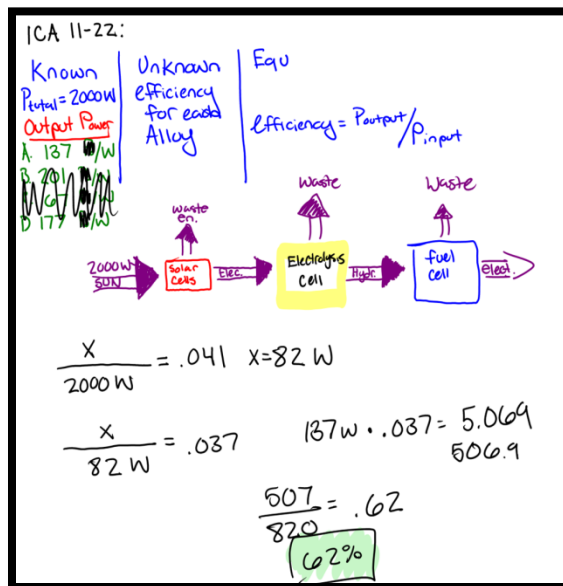 ICA 11-22:
Known
Ptotal = 2000W
Output Power
A. 137 /W
B. 201
67
D 177 /W
Unknown
efficiency
for each
Alloy
Equ
efficiency = Poutput/Pinput
waste
en.
Waste
Waste
2000W
SUN
Solar
Cells
Elec.
Electrolysis
Cell
Hydr.
fuel
Cell
elect.
x/2000 W = .041 x=82 W
x/82 W = .037
137w · .037 = 5.069
506.9
507/820 = .62
62%